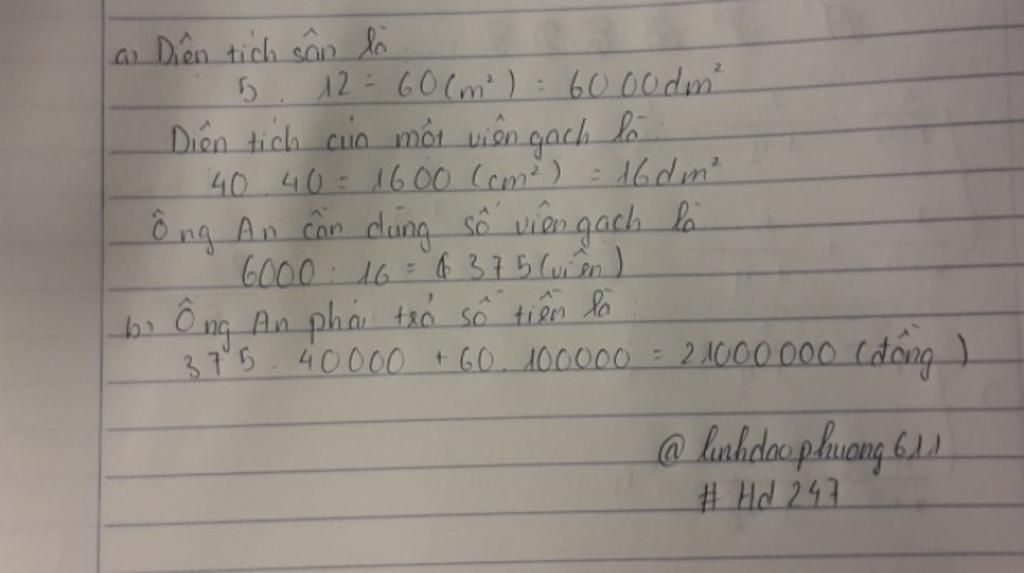 a) Diện tích sân là
5 . 12 = 60 (m²) = 6000dm²
Diện tích của một viên gạch là
40 . 40 = 1600 (cm²) = 16dm²
Ông An cần dùng số viên gạch là
6000 : 16 = 375 (viên)
b) Ông An phải trả số tiền là :
375 . 40000 + 60 . 100000 = 21000000 (đồng)
@ linhdaophuong611
# Hd 247